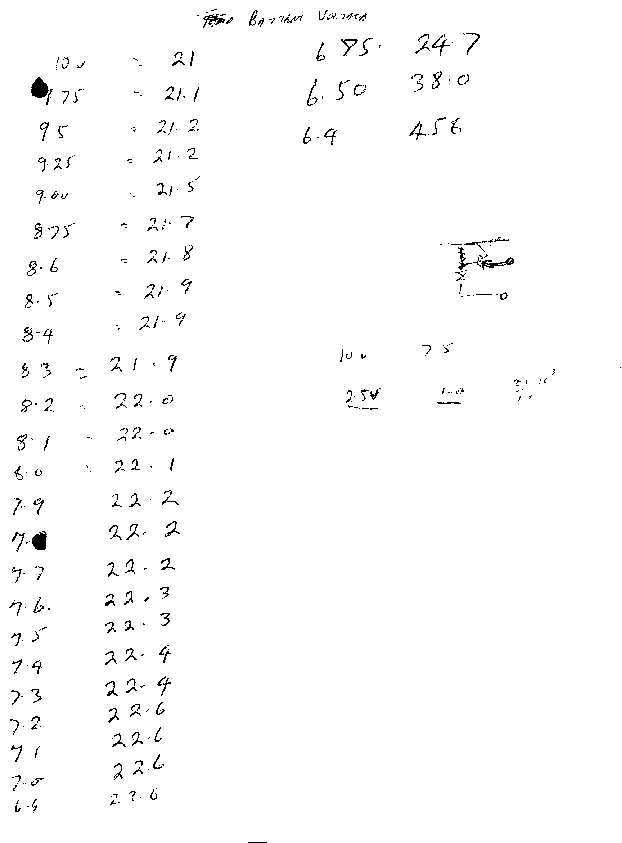 BATTERY VOLTAGE
10.0 = 21
75 = 21.1
9.5 = 21.2
9.25 = 21.2
9.00 = 21.5
8.75 = 21.7
8.6 = 21.8
8.5 = 21.9
8.4 = 21.9
8.3 = 21.9
8.2 - 22.0
8.1 - 22.0
8.0 - 22.1
7.9 22.2
7. 22.2
7.7 22.2
7.6. 22.3
7.5 22.3
7.4 22.4
7.3 22.4
7.2 22.6
7.1 22.6
7.0 22.6
6.9 22.6
6.75. 24.7
6.50 38.0
6.4 45.8
10.0 7.5
2.54